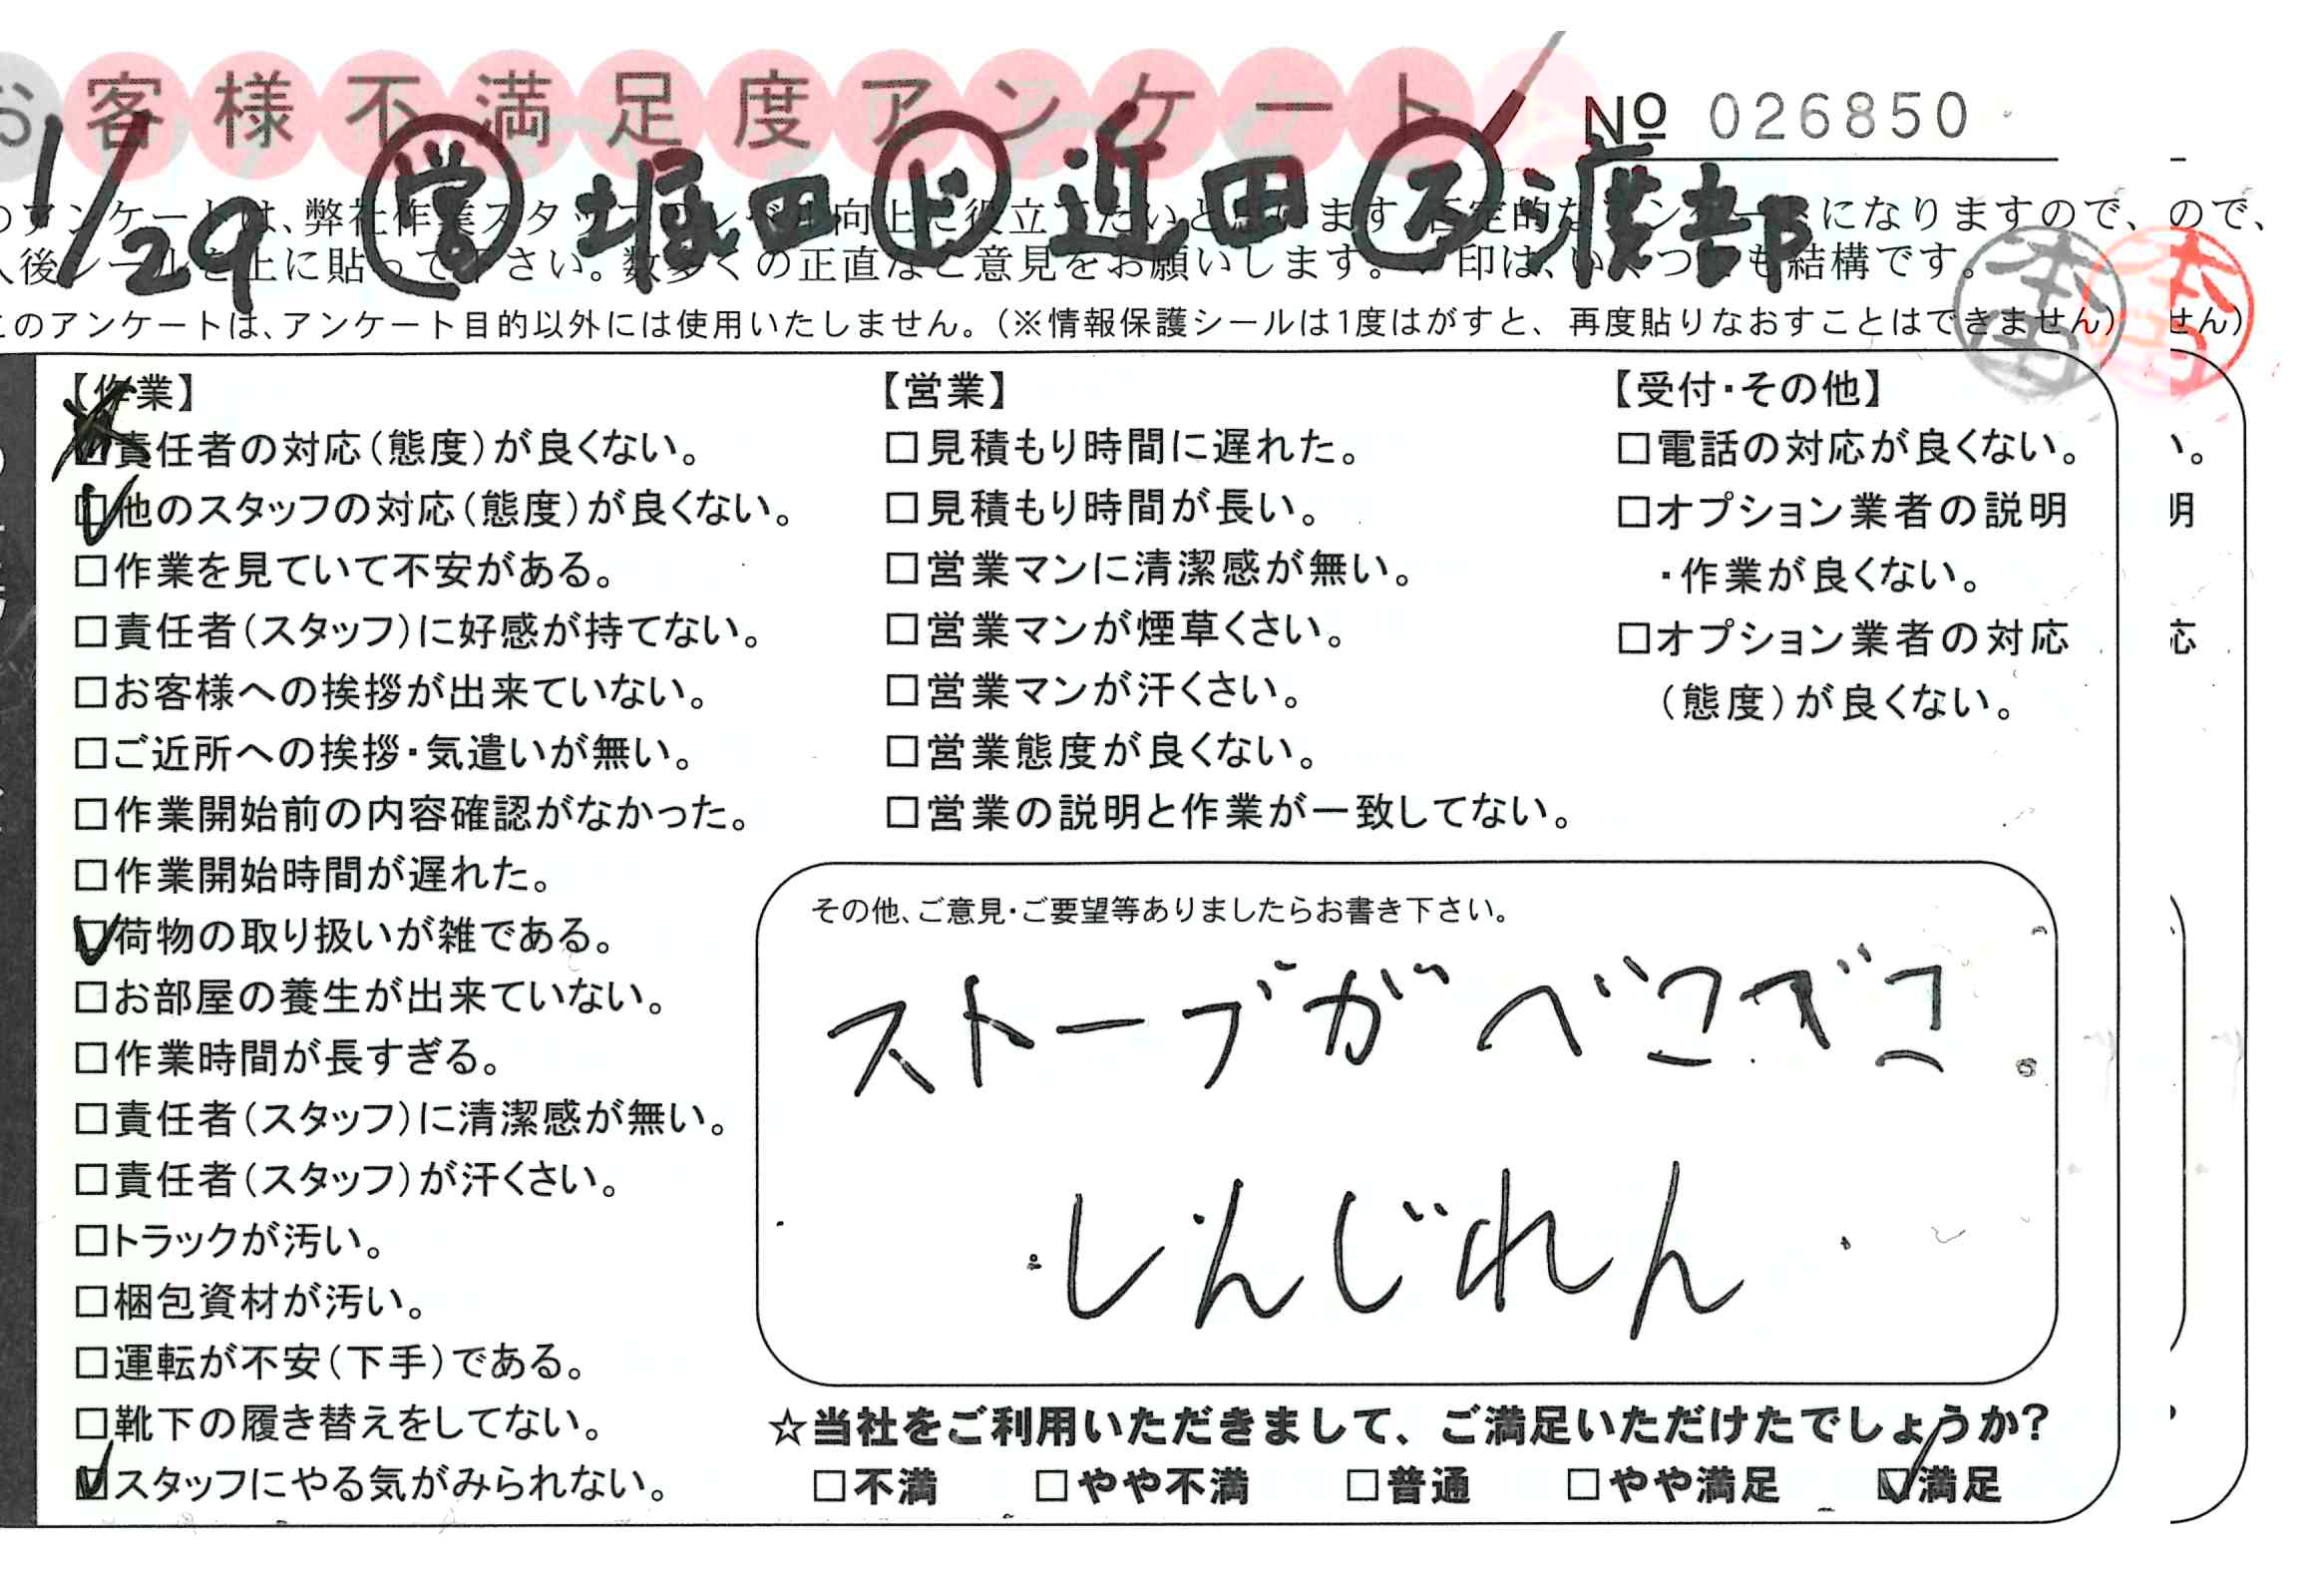 お客様不満足度アンケート
№ 026850
1/29 営 堀田 ド 近田 ス 渡部
のアンケートは、弊社作業スタッフのレベル向上に役立てたいと思います 否定的なアンケートになりますので、 ので、
入後シールを上に貼って下さい。数多くの正直なご意見をお願いします。 印は、いくつでも結構です。
このアンケートは、アンケート目的以外には使用いたしません。(※情報保護シールは1度はがすと、再度貼りなおすことはできません) せん)
【作業】
□責任者の対応(態度)が良くない。
☑他のスタッフの対応(態度)が良くない。
□作業を見ていて不安がある。
□責任者(スタッフ)に好感が持てない。
□お客様への挨拶が出来ていない。
□ご近所への挨拶・気遣いが無い。
□作業開始前の内容確認がなかった。
□作業開始時間が遅れた。
☑荷物の取り扱いが雑である。
□お部屋の養生が出来ていない。
□作業時間が長すぎる。
□責任者(スタッフ)に清潔感が無い。
□責任者(スタッフ)が汗くさい。
□トラックが汚い。
□梱包資材が汚い。
□運転が不安(下手)である。
□靴下の履き替えをしてない。
☑スタッフにやる気がみられない。
【営業】
□見積もり時間に遅れた。
□見積もり時間が長い。
□営業マンに清潔感が無い。
□営業マンが煙草くさい。
□営業マンが汗くさい。
□営業態度が良くない。
□営業の説明と作業が一致してない。
【受付・その他】
□電話の対応が良くない。 い。
□オプション業者の説明 明
・作業が良くない。
□オプション業者の対応 応
(態度)が良くない。
その他、ご意見・ご要望等ありましたらお書き下さい。
ストーブがべこべこ
しんじれん
☆当社をご利用いただきまして、ご満足いただけたでしょうか?
□不満 □やや不満 □普通 □やや満足 ☑満足